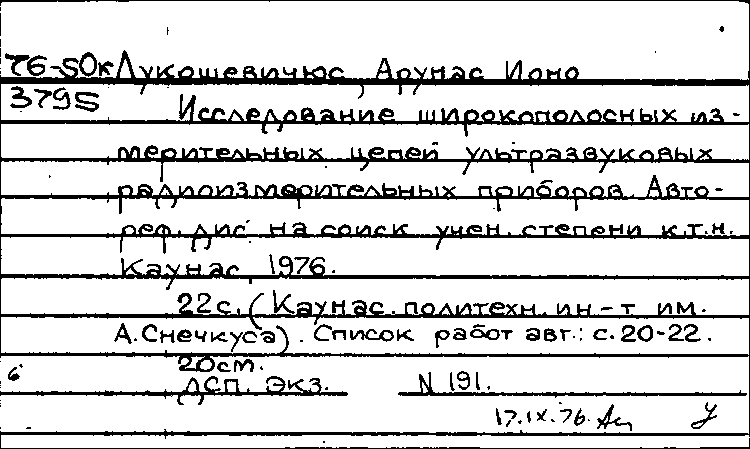 76-50к Лукошевичюс, Арунас Ионо
3795 Исследование широкополосных из-
мерительных цепей ультразвуковых
радиоизмерительных приборов. Авто-
реф. дис. на соиск учен. степени к.т.н.
Каунас, 1976.
22с. (Каунас. политехн. ин-т им.
А.Снечкуса). Список работ авт.: с.20-22.
20см.
6 ДСП. экз. N 191.
17.IX.76.